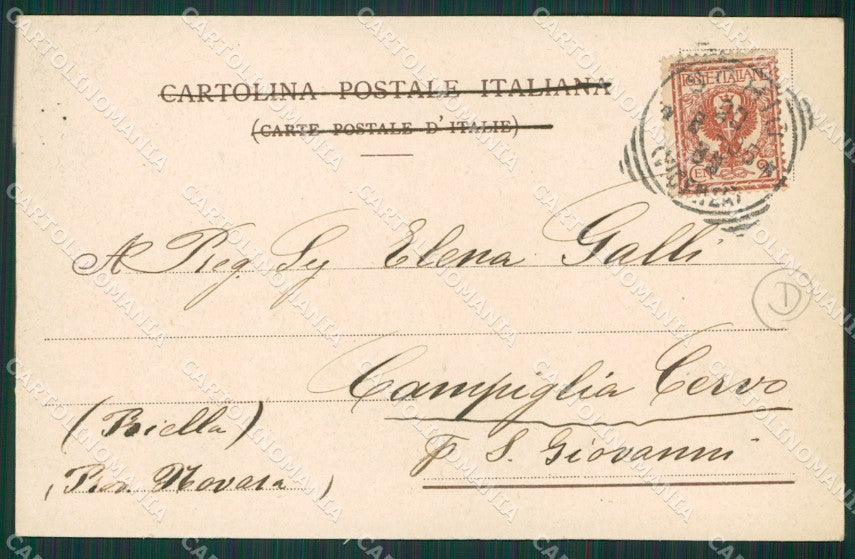 CARTOLINA POSTALE ITALIANA
(CARTE POSTALE D'ITALIE)
POSTE ITALIANE
(VICENZA)
A Preg. Sg Elena Galli
D
Campiglia Cervo
(Biella)
P. S. Giovanni
(Prov. Novara)
CARTOLINOMANIA